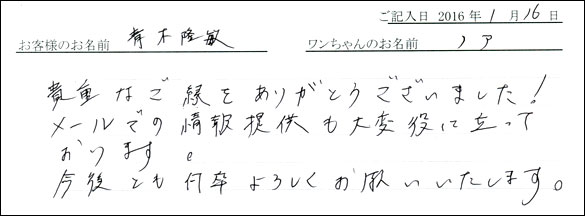 ご記入日 2016年 1月 16日
お客様のお名前 青木隆敏 ワンちゃんのお名前 ノア
貴重なご縁をありがとうございました!
メールでの情報提供も大変役に立って
おります。
今後とも何卒よろしくお願いいたします。